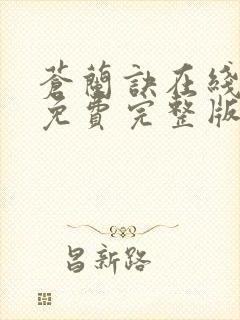 蒼蘭訣在綫
免費完整版
昌新路